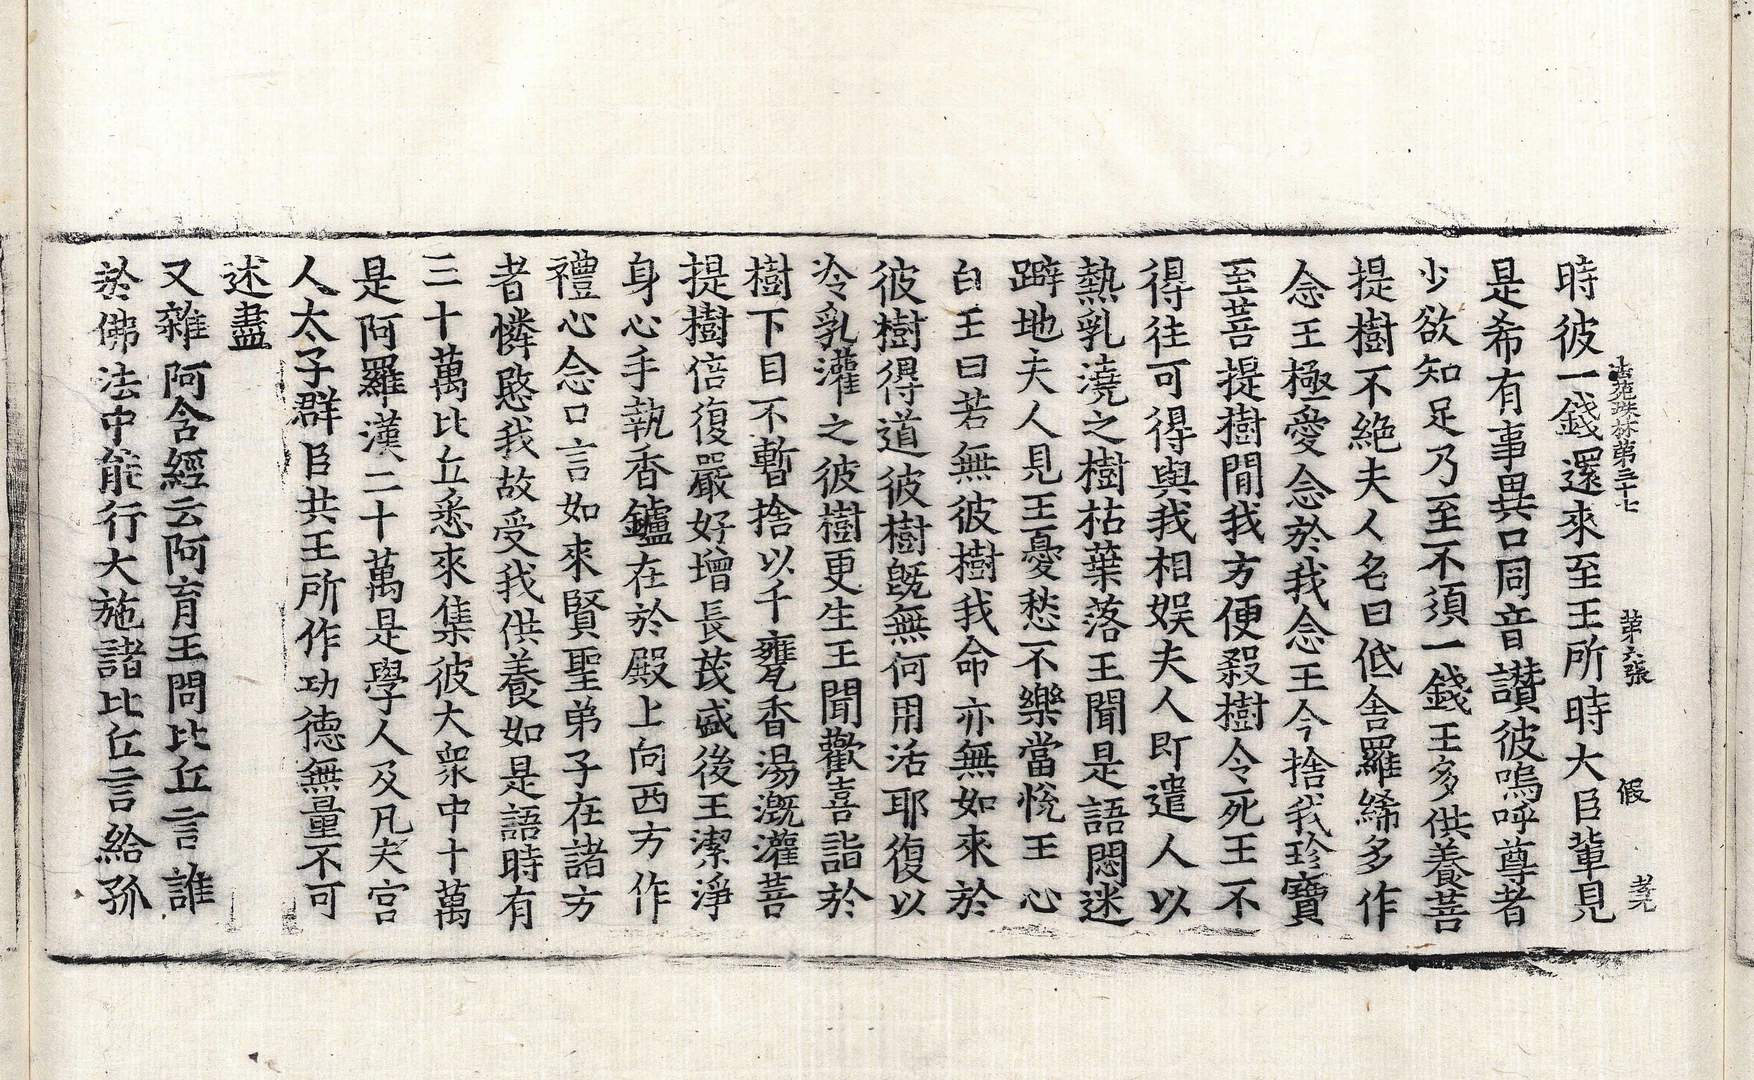 法苑珠林第三十七 第六張 假
時彼一錢還來至王所時大臣輩見
是希有事異口同音讃彼嗚呼尊者
少欲知足乃至不須一錢王多供養菩
提樹不絶夫人名曰低舍羅絺多作
念王極愛念於我念王今捨我珍寶
至菩提樹間我方便殺樹令死王不
得往可得與我相娱夫人即遣人以
熱乳澆之樹枯葉落王聞是語悶迷
躃地夫人見王憂愁不樂當悅王心
白王曰若無彼樹我命亦無如來於
彼樹得道彼樹旣無何用活耶復以
冷乳灌之彼樹更生王聞歡喜詣於
樹下目不暫捨以千甕香湯漑灌菩
提樹倍復嚴好增長茂盛後王潔淨
身心手執香鑪在於殿上向西方作
禮心念口言如來賢聖弟子在諸方
者憐愍我故受我供養如是語時有
三十萬比丘悉來集彼大衆中十萬
是阿羅漢二十萬是學人及凡夫宫
人太子群臣共王所作功德無量不可
述盡
又雜阿含經云阿育王問比丘言誰
於佛法中能行大施諸比丘言給孤